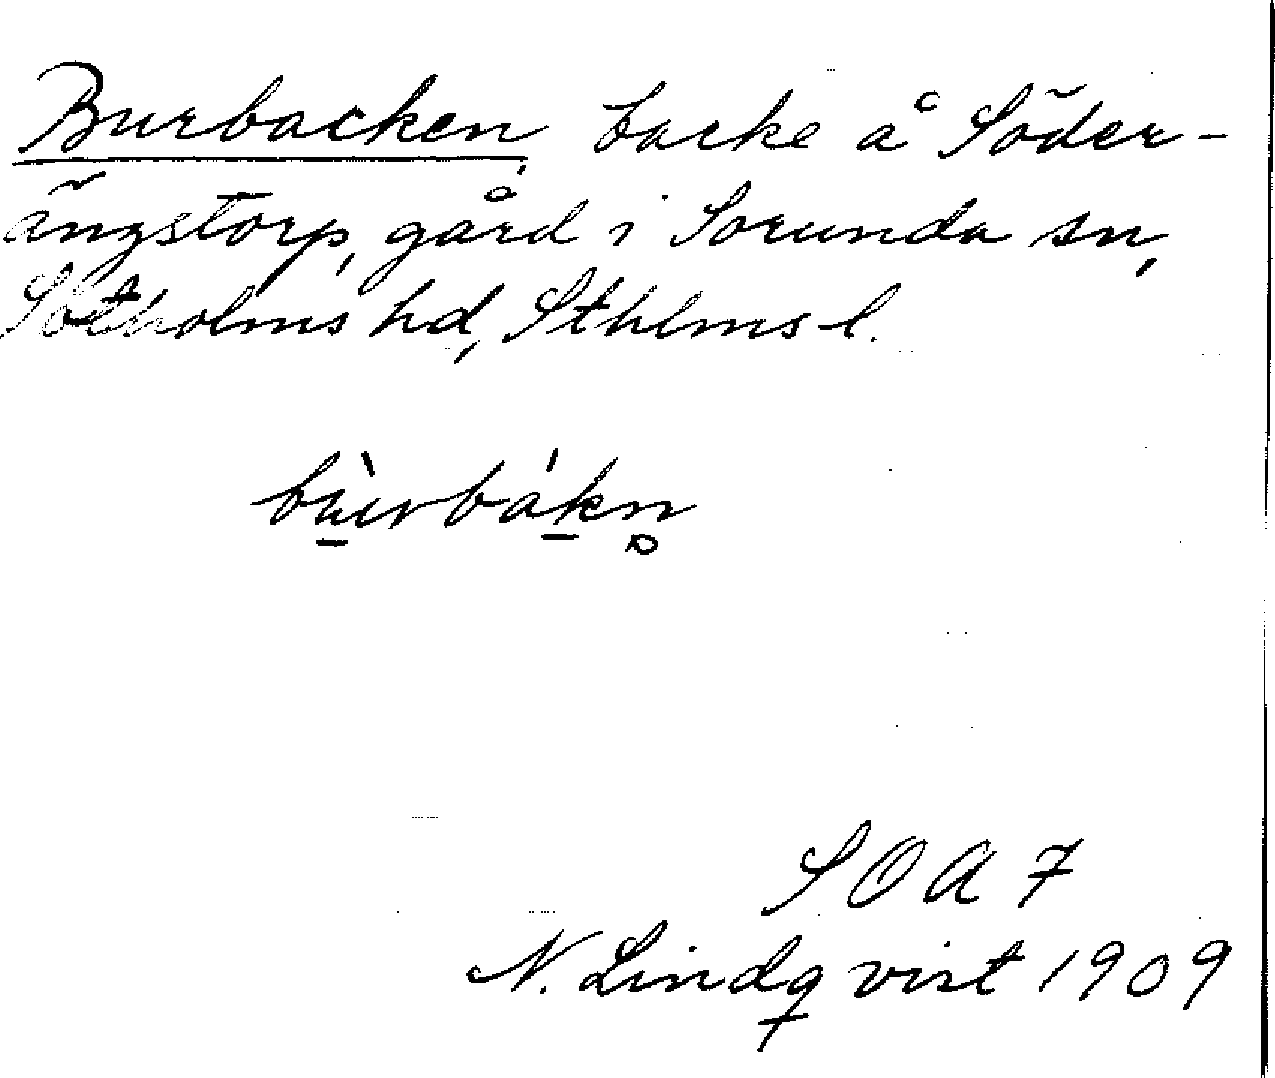 Burbacken, backe å Söder-
ängstorp, gård i Sorunda sn,
Sotholms hd, Sthlms l.
bu̱̇̀rbákn̥
S O A 7
N. Lindqvist 1909